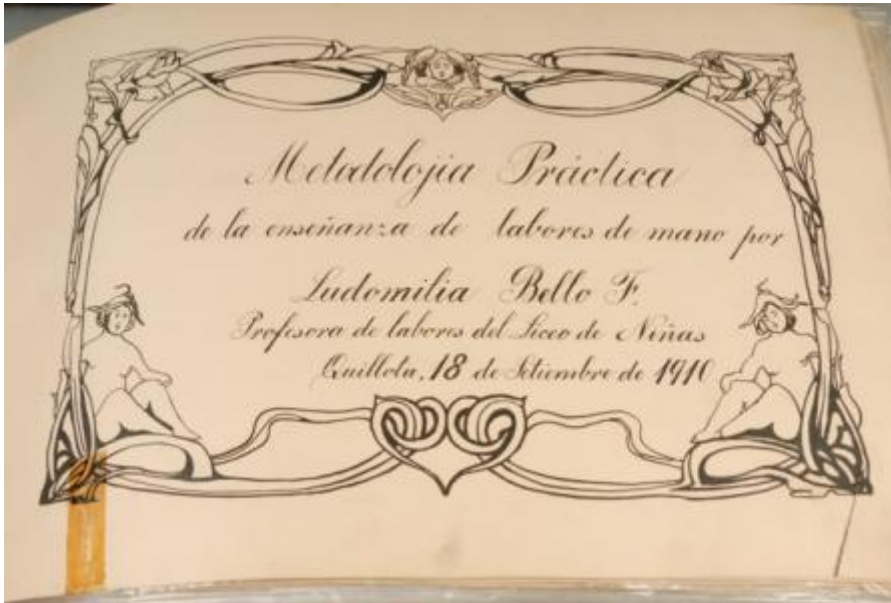 Metodolojia Práctica
de la enseñanza de labores de mano por
Ludomilia Bello F.
Profesora de labores del Liceo de Niñas
Quillota, 18 de Setiembre de 1910